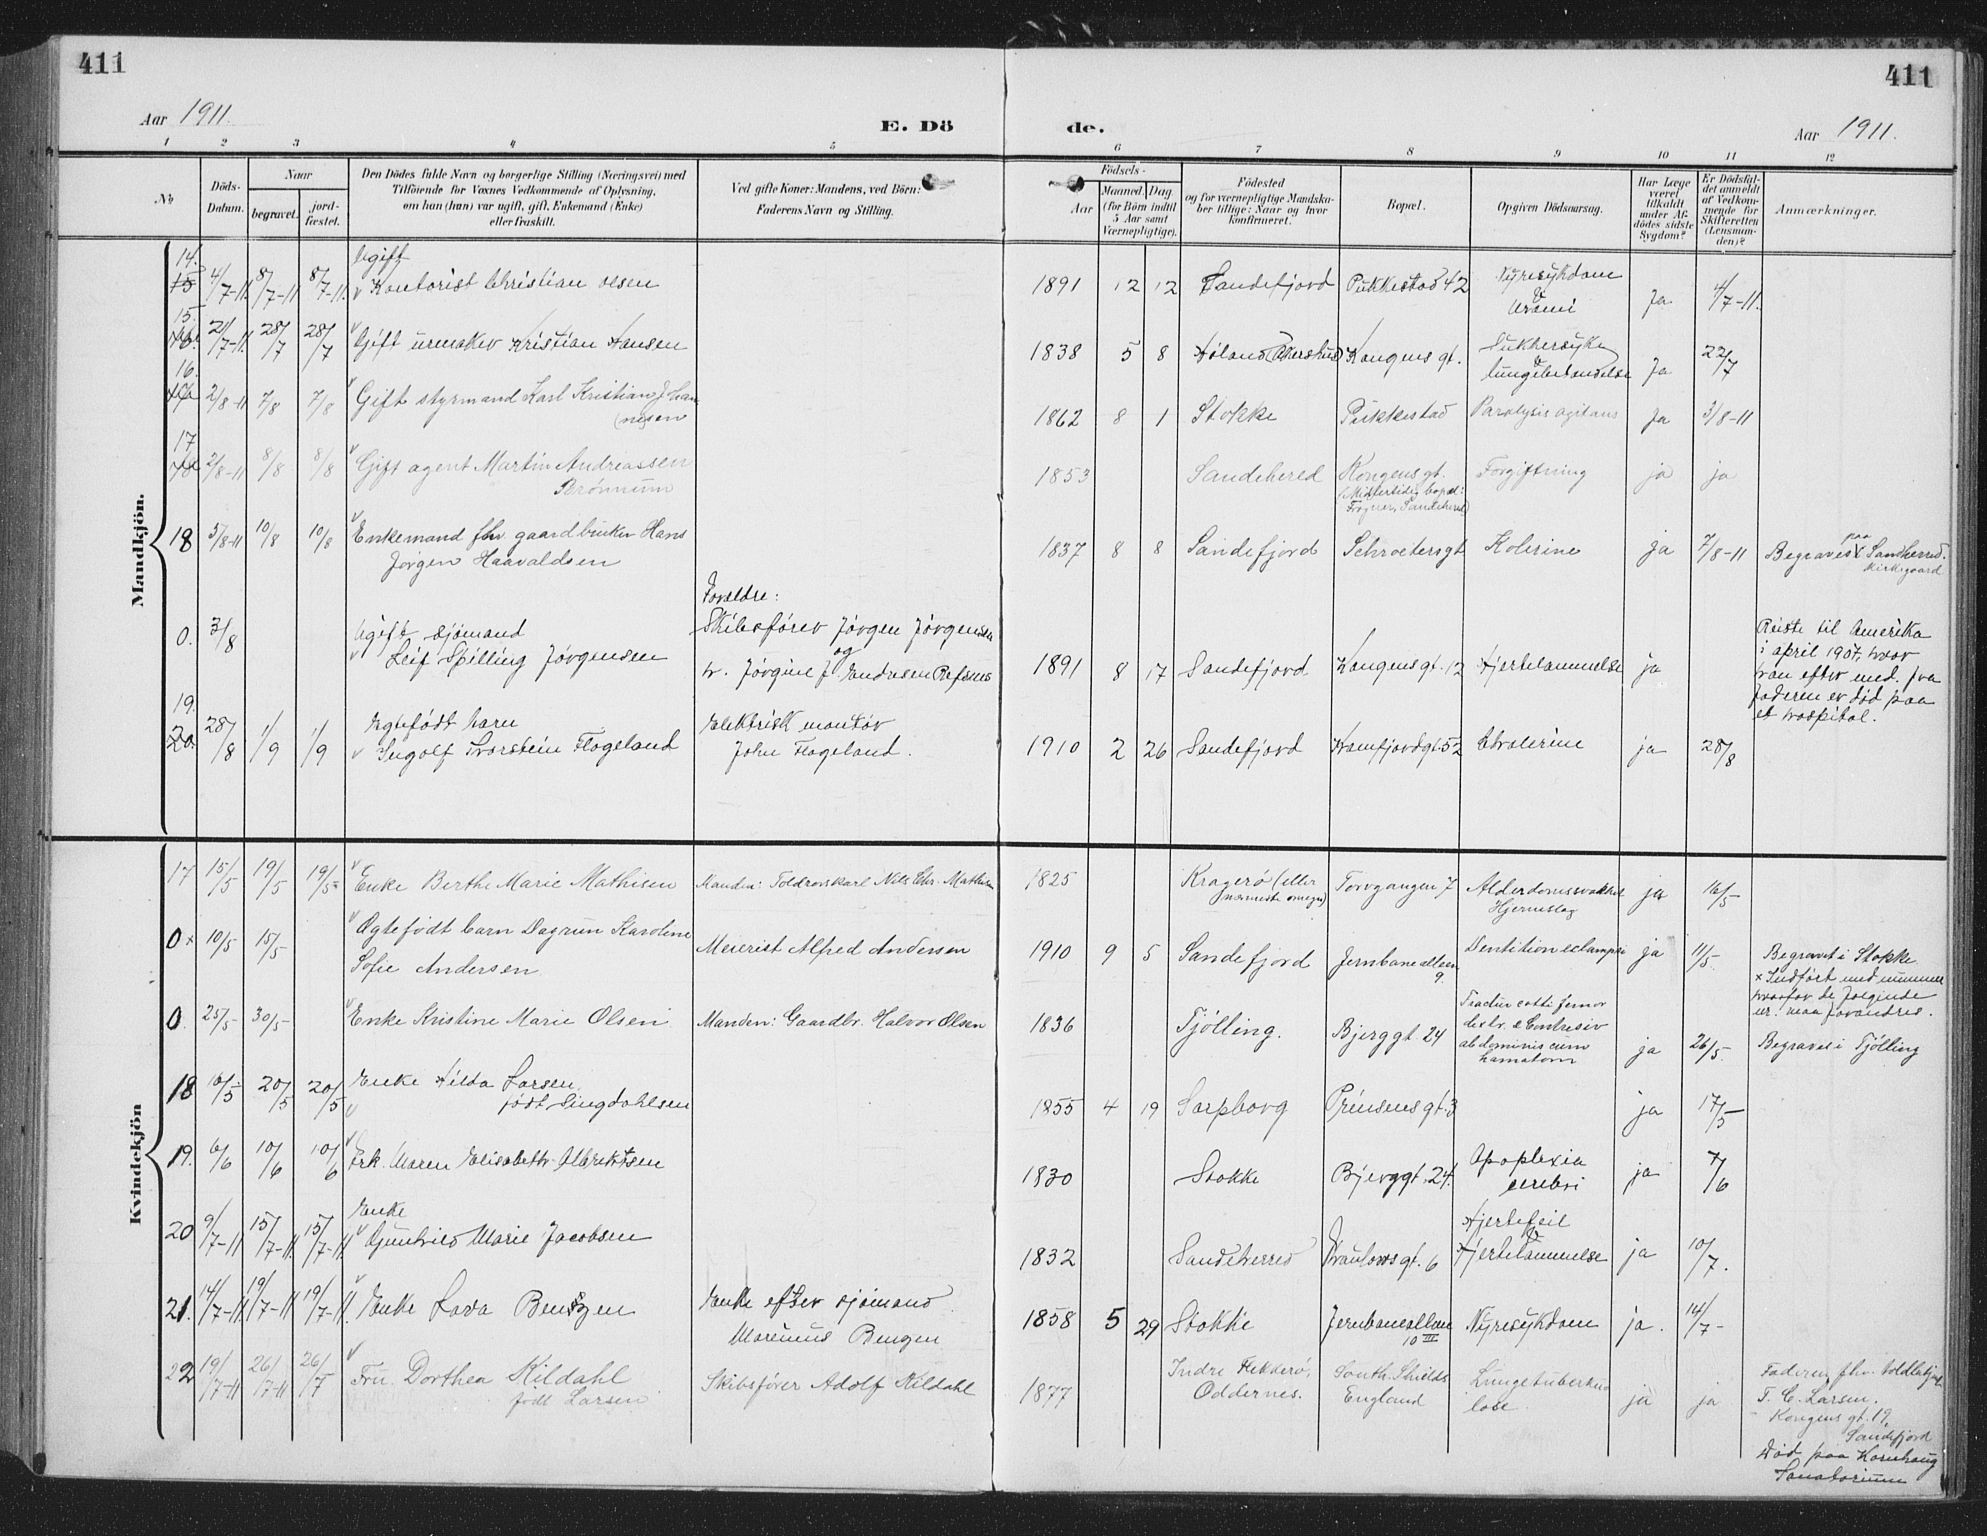 411
411
Aar 1911.
E. Dö
de.
Aar 1911.
1 2 3 4 5 6 7 8 9 10 11 12
No
Döds-Datum.
Naar
begravet.
jord-fæstet.
Den Dödes fulde Navn og borgerlige Stilling (Næringsvei) med
Tilföiende for Voxnes Vedkommende af Oplysning,
om han (hun) var ugift, gift, Enkemand (Enke)
eller fraskilt.
Ved gifte Koner: Mandens, ved Börn:
Faderens Navn og Stilling.
Födsels-
Aar
Maaned.
Dag.
(for Börn indtil
5 Aar samt
Værnepligtige).
Födested
og for værnepligtige Mandska-
ber tillige: Naar og hvor
konfirmeret.
Bopæl.
Opgiven Dödsaarsag.
Har Læge
været
tilkaldt
under Af-
dödes sidste
Sygdom?
Er Dödsfal-
det anmeldt
af Vedkom-
mende for
Skifteretten
(Lensman-
den)?
Anmærkninger.
Mandkjön.
14. 4/7-11 8/7-11 8/7-11. Ugift
Kontorist Christian Olsen 1891 12 12 Sandefjord Pukkestad 42 Nyresykdom & Uræmi Ja 4/7-11.
15. 21/7-11. 28/7 28/7 Gift urmaker Kristian Hansen 1838 5 8 Høland (Akershus) Kongens gt. Sukkersyke & lungebetændelse Ja 22/7
16. 2/8-11 7/8 7/8 Gift styrmand Karl Kristian Johan
(nesen 1862 8 1 Stokke Pukkestad Paralysis agitans Ja 3/8-11
17 2/8-11 8/8 8/8 Gift agent Martin Andreassen
Brönnum 1853 Sandeherred Kongens gt. (Midlertidig bopæl: Sandeherred) Forgiftning ja ja
18 5/8-11 10/8 10/8 Enkemand fhv. gaardbruker Hans
Jørgen Haavaldsen 1837 8 8 Sandefjord Schroetersgt Kolerine ja 7/8-11 Begraves paa Sandherred. Kirkegaard
0. 3/8 Ugift sjömand
Leif Spilling Jørgensen Forældre:
Skibsfører Jörgen Jörgensen
og
h. Jørgine J. Andresen Refsnes 1891 8 17 Sandefjord Kongensgt. 12 Hjertelammelse ja
Reiste til Amerika
i april 1907, hvor
han efter med. fra
faderen er död paa
et hospital.
19. 28/8 1/9 1/9 Egtefödt barn
Ingolf Torstein Flogeland Elektrisk montør
John Flogeland. 1910 2 26 Sandefjord Kamfjordgt. 52 Cholerine ja 28/8
Kvindekjön
17 15/5 19/5 19/5 Enke Berthe Marie Mathisen Manden: Toldroerskarl Nils Chr. Mathisen 1825 Kragerö (eller nærmeste omegn) Torvgangen 7 Alderdomssvakhet Hjerneslag ja 16/5
0 x 10/5 15/5 Ægtefödt barn Dagrun Karoline
Sofie Andersen Meierist Alfred Andersen 1910 9 5 Sandefjord Jernbanealleen 9. Dentition eclampsi ja 11/5 Begravet i Stokke
x Indfört med nummer
hvorfor de følgende
nr. maa forandres.
0. 25/5 30/5 Enke Kristine Marie Olsen Manden: Gaardbr. Halvor Olsen 1836 Tjölling. Bjerggt. 24 Fractur colli femor dextr. & Contusio abdominis cum hæmatom ja 26/5. Begraves i Tjölling
18 16/5 20/5 20/5 Enke Hilda Larsen,
födt Lingdahlsen 1855 4 19 Sarpborg Prinsensgt. 3 ja 17/5
19. 6/6 10/6 10/6 Frk. Maren Elisabeth Albrektsen 1830 Stokke Bjerggt. 24. Apoplexia cerebri ja 7/6
20 9/7-11 15/7-11. 15/7-11. Enke
Gunhild Marie Jacobsen 1832 Sandeherred gt. 6 Hjertefeil & Hjertelammelse ja 10/7.
21. 14/7-11 19/7-11 19/7-11. Enke Lava Bengen Enke efter sjömand
Marinius Bengen 1858 5 29 Stokke Jernbanealleen 10 III Nyresykdom ja. 14/7-
22 19/7-11 26/7-11 26/7 Fru Dorthea Kildahl
födt Larsen Skibsförer Adolf Kildahl 1877 Indre Flekkerö, Oddernes. South Shields England Lungetuberkulose. ja ja Faderen, fhv.
T. C. Larsen.
Kongens gt. 19,
Sandefjord
Död paa Kornhaug
Sanatorium